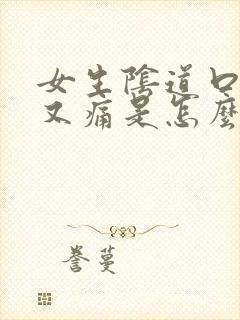 女生陰道口
又痛是怎麼
誉蔓